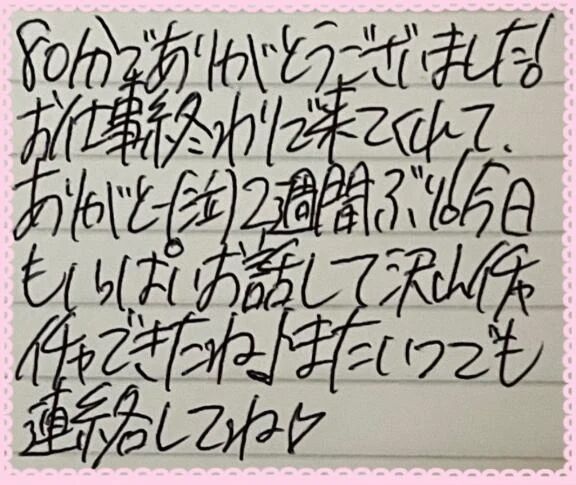 80分でありがとうございました!
お仕事終わりで来てくれて、
ありがと-(泣)2週間ぶり!!今日
もいっぱいお話して沢山イチャ
イチャできたね♪またいつでも
連絡してね♡